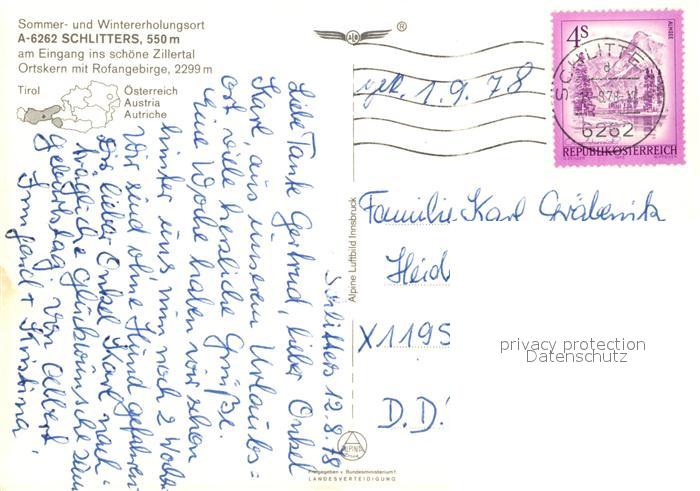 Sommer- und Wintererholungsort
A-6262 SCHLITTERS, 550 m
am Eingang ins schöne Zillertal
Ortskern mit Rofangebirge, 2299 m
Tirol
Österreich
Austria
Autriche
®
4s
ALMSEE
REPUBLIK ÖSTERREICH
SCHLITTE
6262
1.9.78
Schlitters 12.8.78
Liebe Tante Gertrud, lieber Onkel
Karl, aus unserem Urlaubs=
ort viele herzliche Grüße.
Eine Woche haben wir schon
hinter uns nun noch 2 Wochen
Wir sind ohne Hund gefahren
Dir lieber Onkel Karl nach=
trägliche Glückwünsche zum
Geburtstag von Albert
Irmgard + Kristina
Alpine Luftbild Innsbruck
Familie Karl
Heid
X1195
D.D.
privacy protection
Datenschutz
Freigegeben v. Bundesministerium f.
LANDESVERTEIDIGUNG